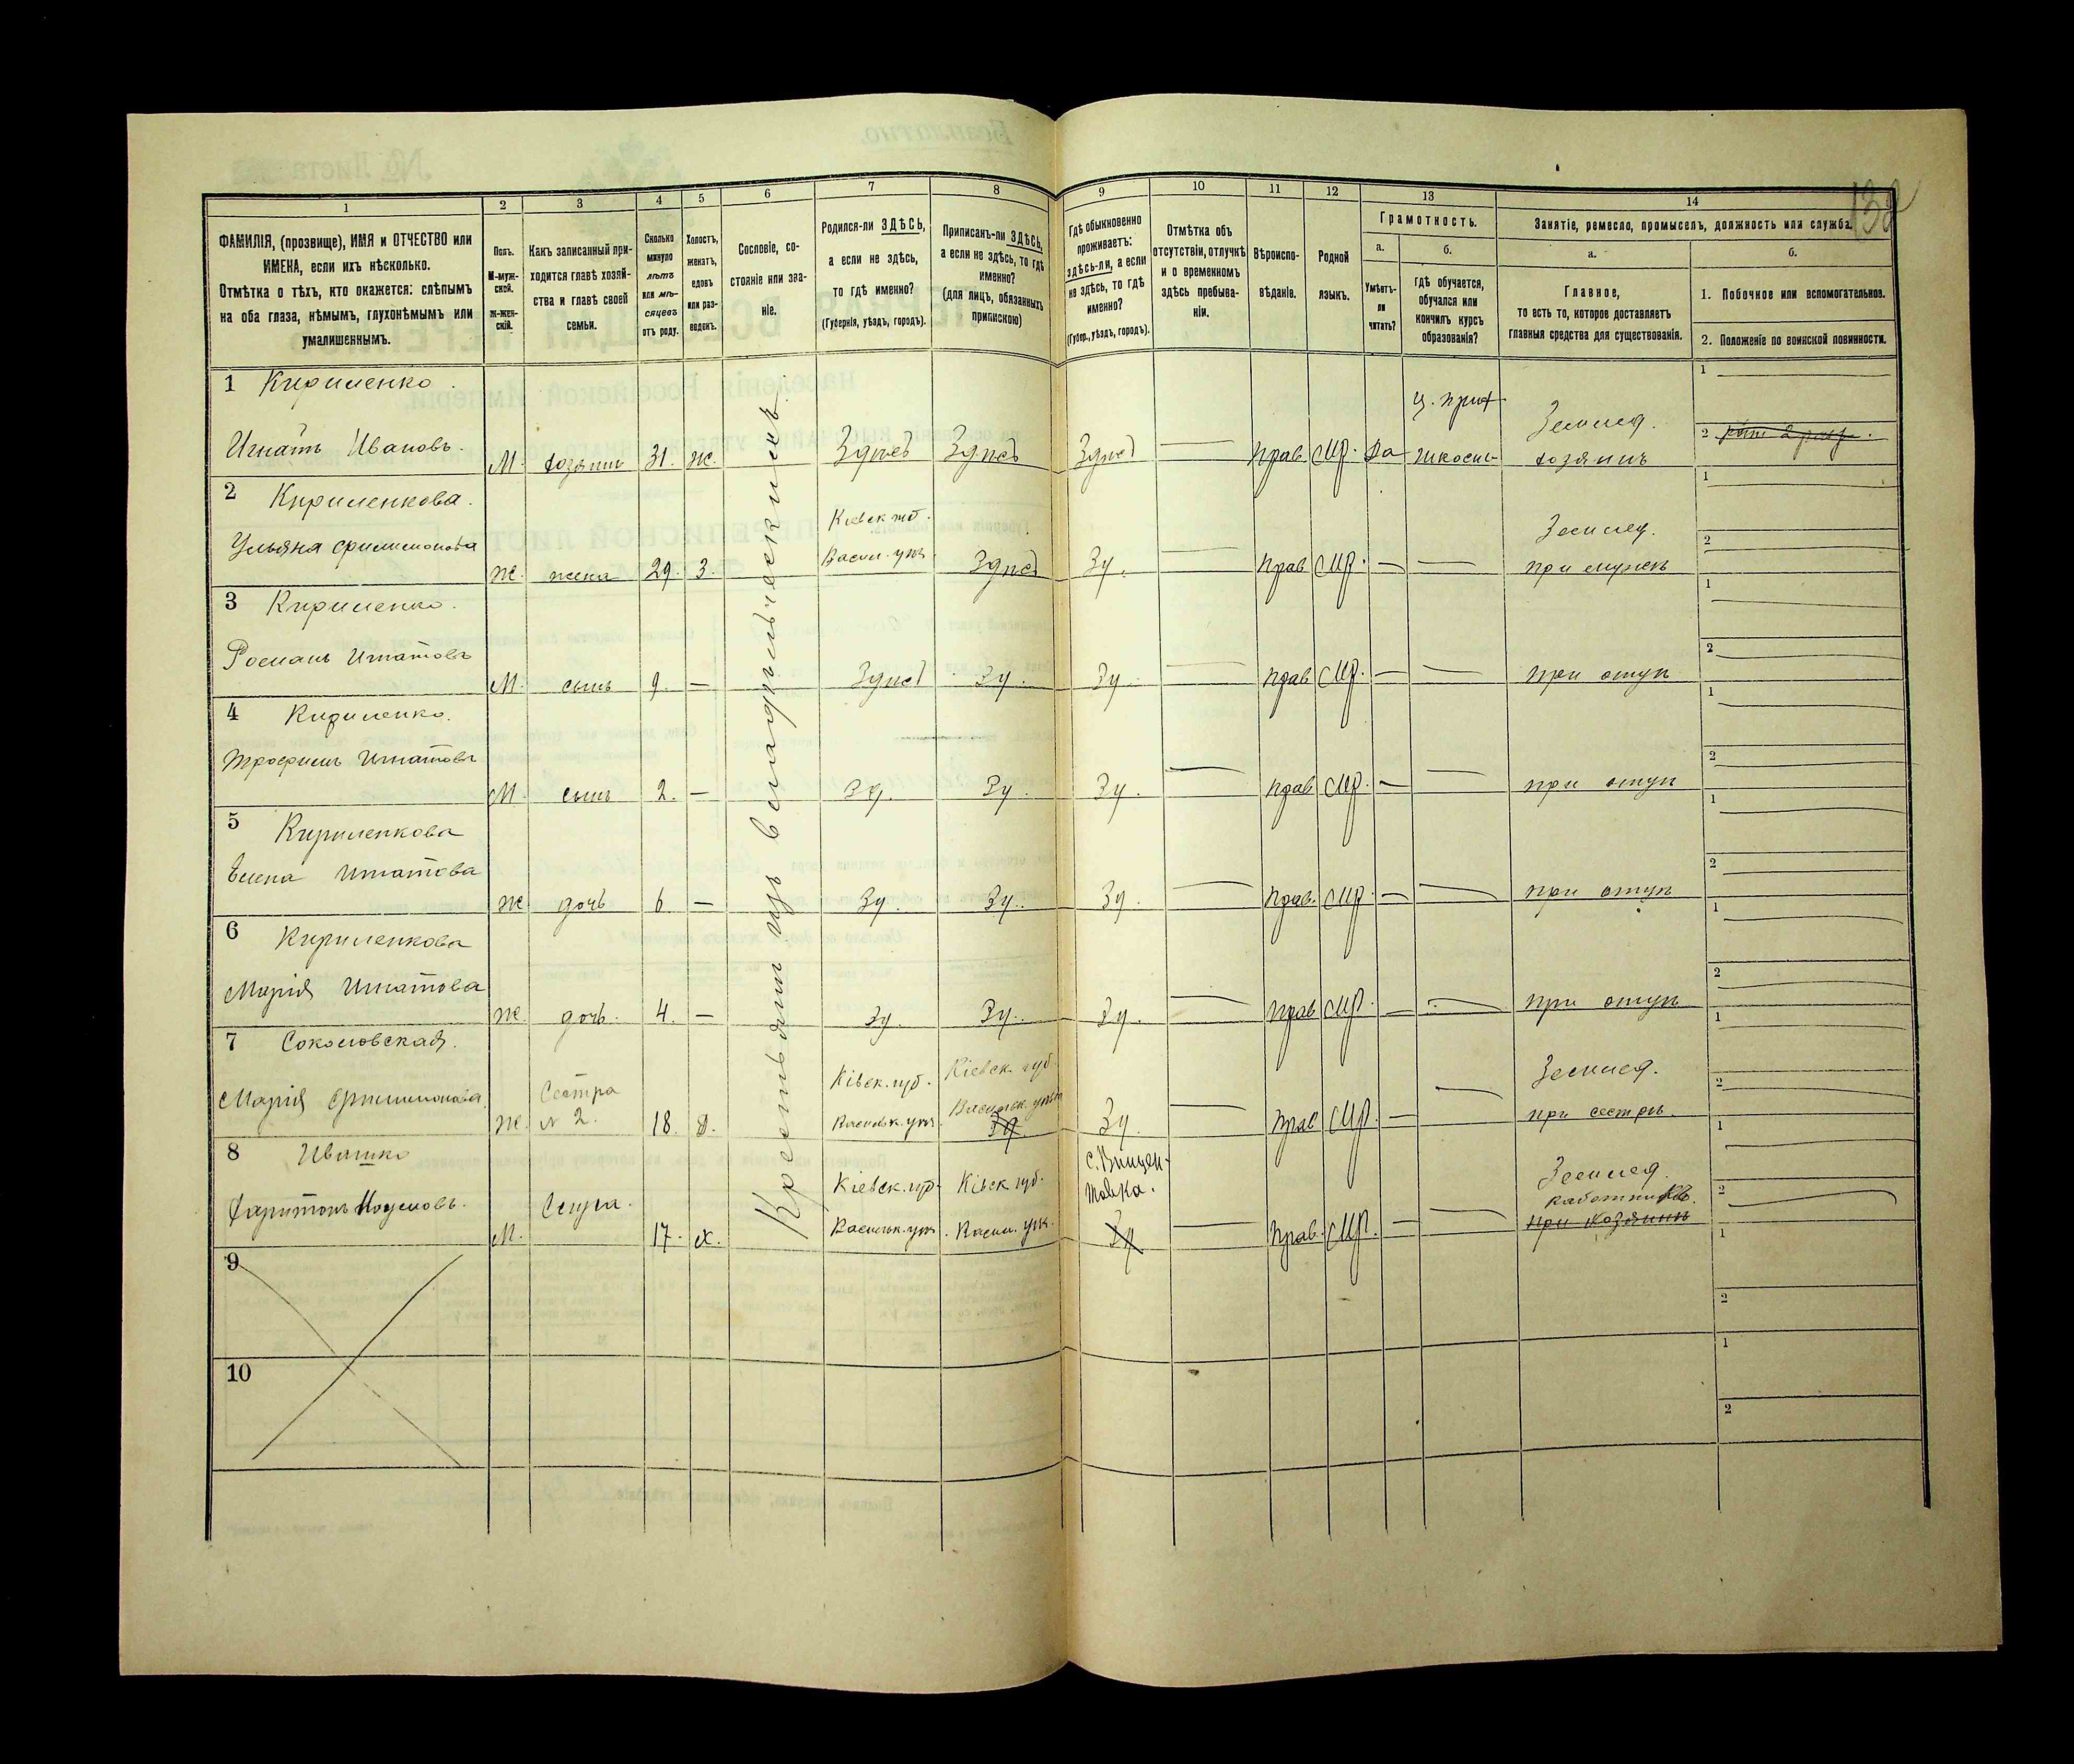 132
1
2
3
4
5
6
7
8
9
10
11
12
13
14
ФАМИЛІЯ, (прозвище), ИМЯ и ОТЧЕСТВО или
ИМЕНА, если ихъ нѣсколько.
Отмѣтка о тѣхъ, кто окажется: слѣпымъ
на оба глаза, нѣмымъ, глухонѣмымъ или
умалишеннымъ.
Полъ.
М-муж-
ской.
Ж-жен-
скій.
Какъ записанный при-
ходится главѣ хозяй-
ства и главѣ своей
семьи.
Сколько
минуло
лѣтъ
или мѣ-
сяцевъ
отъ роду.
Холостъ,
женатъ,
вдовъ
или раз-
веденъ.
Сословіе, со-
стояніе или зва-
ніе.
Родился-ли ЗДѢСЬ,
а если не здѣсь,
то гдѣ именно?
(Губернія, уѣздъ, городъ).
Приписанъ-ли ЗДѢСЬ,
а если не здѣсь, то гдѣ
именно?
(для лицъ, обязанныхъ
припискою)
Гдѣ обыкновенно
проживаетъ:
здѣсь-ли, а если
не здѣсь, то гдѣ
именно?
(Губер., уѣздъ, городъ).
Отмѣтка объ
отсутствіи, отлучкѣ
и о временномъ
здѣсь пребыва-
ніи.
Вѣроиспо-
вѣданіе.
Родной
языкъ.
Грамотность.
а.
б.
Умѣетъ-
ли
читать?
Гдѣ обучается,
обучался или
кончилъ курсъ
образованія?
Занятіе, ремесло, промыселъ, должность или служба.
а.
б.
Главное,
то есть то, которое доставляетъ
главныя средства для существованія.
1. Побочное или вспомогательное.
2. Положеніе по воинской повинности.
Крестьянинъ изъ владѣльческихъ
1 Кириленко.
Игнатъ Ивановъ. М. хозяинъ 31. ж. Здѣсь Здѣсь Здѣсь — Прав. Мр. Да
ц. прих
школѣ
Землед.
хозяинъ
1
2
2 Кириленкова.
Ульяна Филимонова Ж. жена 29. З.
Кіевск. губ.
Васил. уѣз.
Здѣсь Зд. — Прав Мр. — —
Землед.
при мужѣ
1
2
3 Кириленко.
Романъ Игнатовъ М. сынъ 9. — Здѣсь Зд. Зд — Прав Мр. — — при отцѣ
1
2
4 Кириленко.
Трофимъ Игнатовъ М. сынъ 2. — Зд. Зд. Зд. — Прав Мр. — — при отцѣ
1
2
5 Кириленкова
Елена Игнатова Ж дочь 6 — Зд. Зд. Зд. — Прав. Мр. — — при отцѣ
1
2
6 Кириленкова
Марія Игнатова Ж. дочь. 4. — Зд. Зд. Зд. — Прав Мр. — — при отцѣ
1
2
7 Соколовская.
Марія Филимонова. Ж.
Сестра
№ 2.
18. д.
Кіевск. губ.
Васильк. уѣз.
Кіевск. губ.
Васильк. уѣзд
Зд.
Зд. — Прав Мр. — —
Землед.
при сестрѣ.
1
2
8 Ивашко
Харитонъ Наумовъ. М. Слуга. 17. х.
Кіевск. губ.
Васильк. уѣз.
Кіевск губ.
Васил. уѣз.
с. Винцен-
товка.
Зд
— Прав. Мр. — —
Землед.
работникъ.
при хозяинѣ
1
2
9
1
2
10
1
2